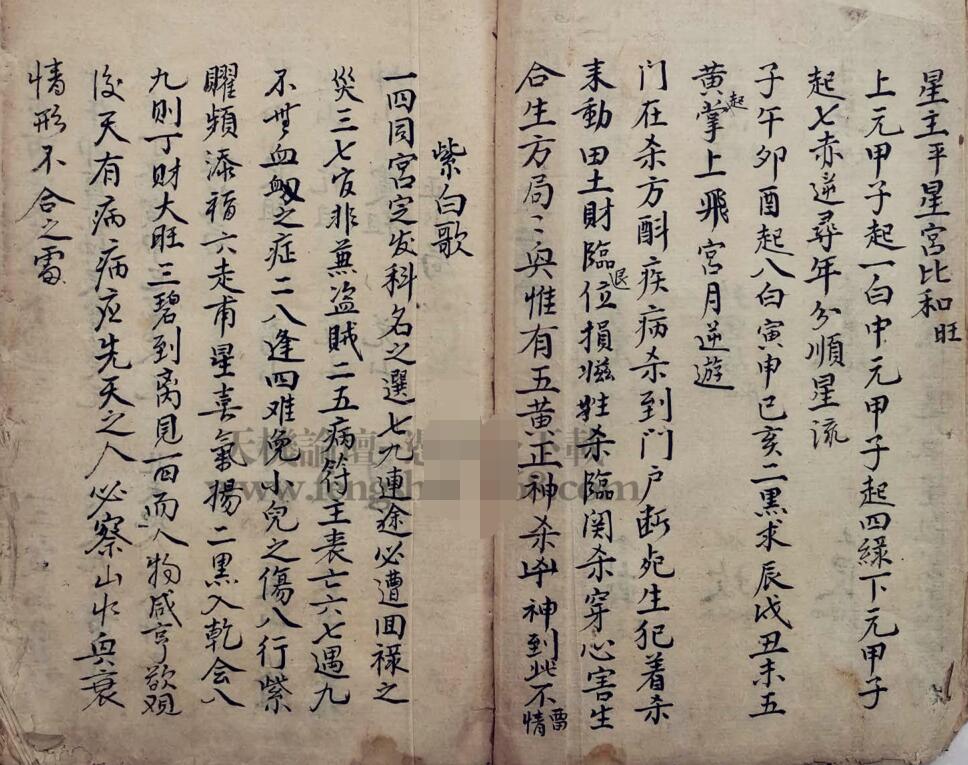 星主平星宮比和旺
上元甲子起一白中元甲子起四緑下元甲子
起七赤逆尋年分順星流
子午卯酉起八白寅申巳亥二黒求辰戌丑未五
黄起掌上飛宮月逆遊
门在杀方酙疾病杀到门户断死生犯着杀
耒動田土財臨退位損滋牲杀臨関杀穿心害生
合生方局〻與惟有五黄正神杀凶神到此不
留情
紫白歌
一四同宮定发科名之選七九連途必遭回禄之
災三七官非蒹盗贼二五病符主丧亡六七遇九
不無血之症二八逢四难免小兒之傷八行紫
曜頻添福六走甫星喜氣揚二黒入乾会八
九则丁财大旺三碧到离見一四而人物咸亨欲观
後天有病病应先天之人必察山水與衰
情形不合之
天機論壇
下載